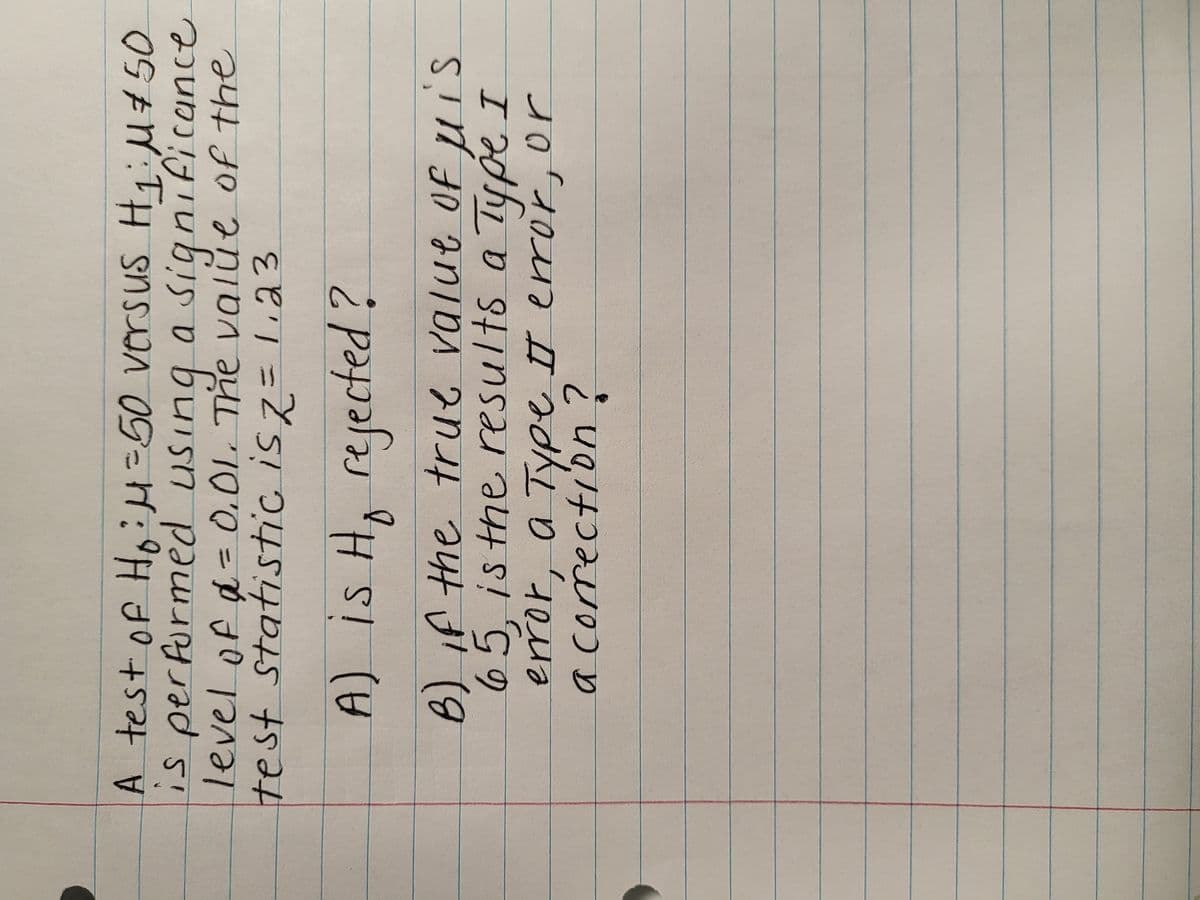 A test of H₀: μ=50 versus H₁: μ≠50
is performed using a significance
level of α = 0.01. The value of the
test statistic is z = 1.23
A) is H₀ rejected?
B) if the true value of μ is
65, is the results a Type I
error, a Type II error, or
a correction?